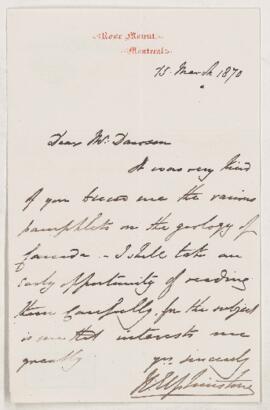 Rose Mount,
Montreal.
15. March 1870
Dear Mr. Dawson
It was very kind
of you to send me the various
pamphlets on the geology of
Canada - I shall take an
early opportunity of reading
them carefully, for the subject
is one that interests me
greatly.
yrs. sincerely